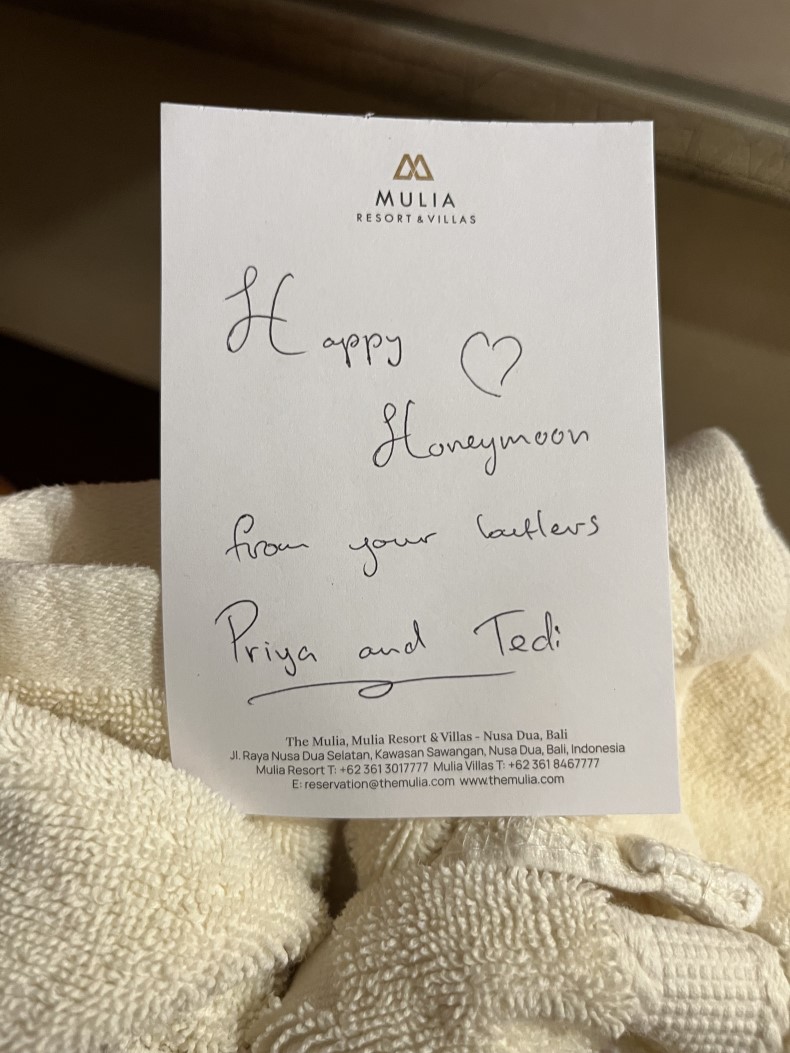 MULIA
RESORT & VILLAS
Happy ♡
Honeymoon
from your butlers
Priya and Tedi
The Mulia, Mulia Resort & Villas - Nusa Dua, Bali
Jl. Raya Nusa Dua Selatan, Kawasan Sawangan, Nusa Dua, Bali, Indonesia
Mulia Resort T: +62 361 3017777 Mulia Villas T: +62 361 8467777
E: reservation@themulia.com www.themulia.com